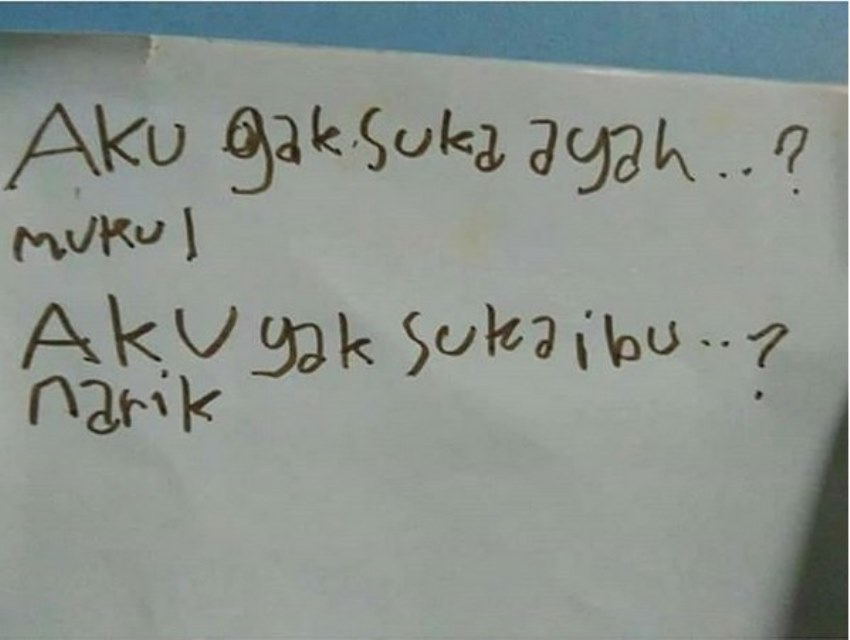 AKU gak suka ayah..?
mukul
AKU yak suka ibu..?
narik